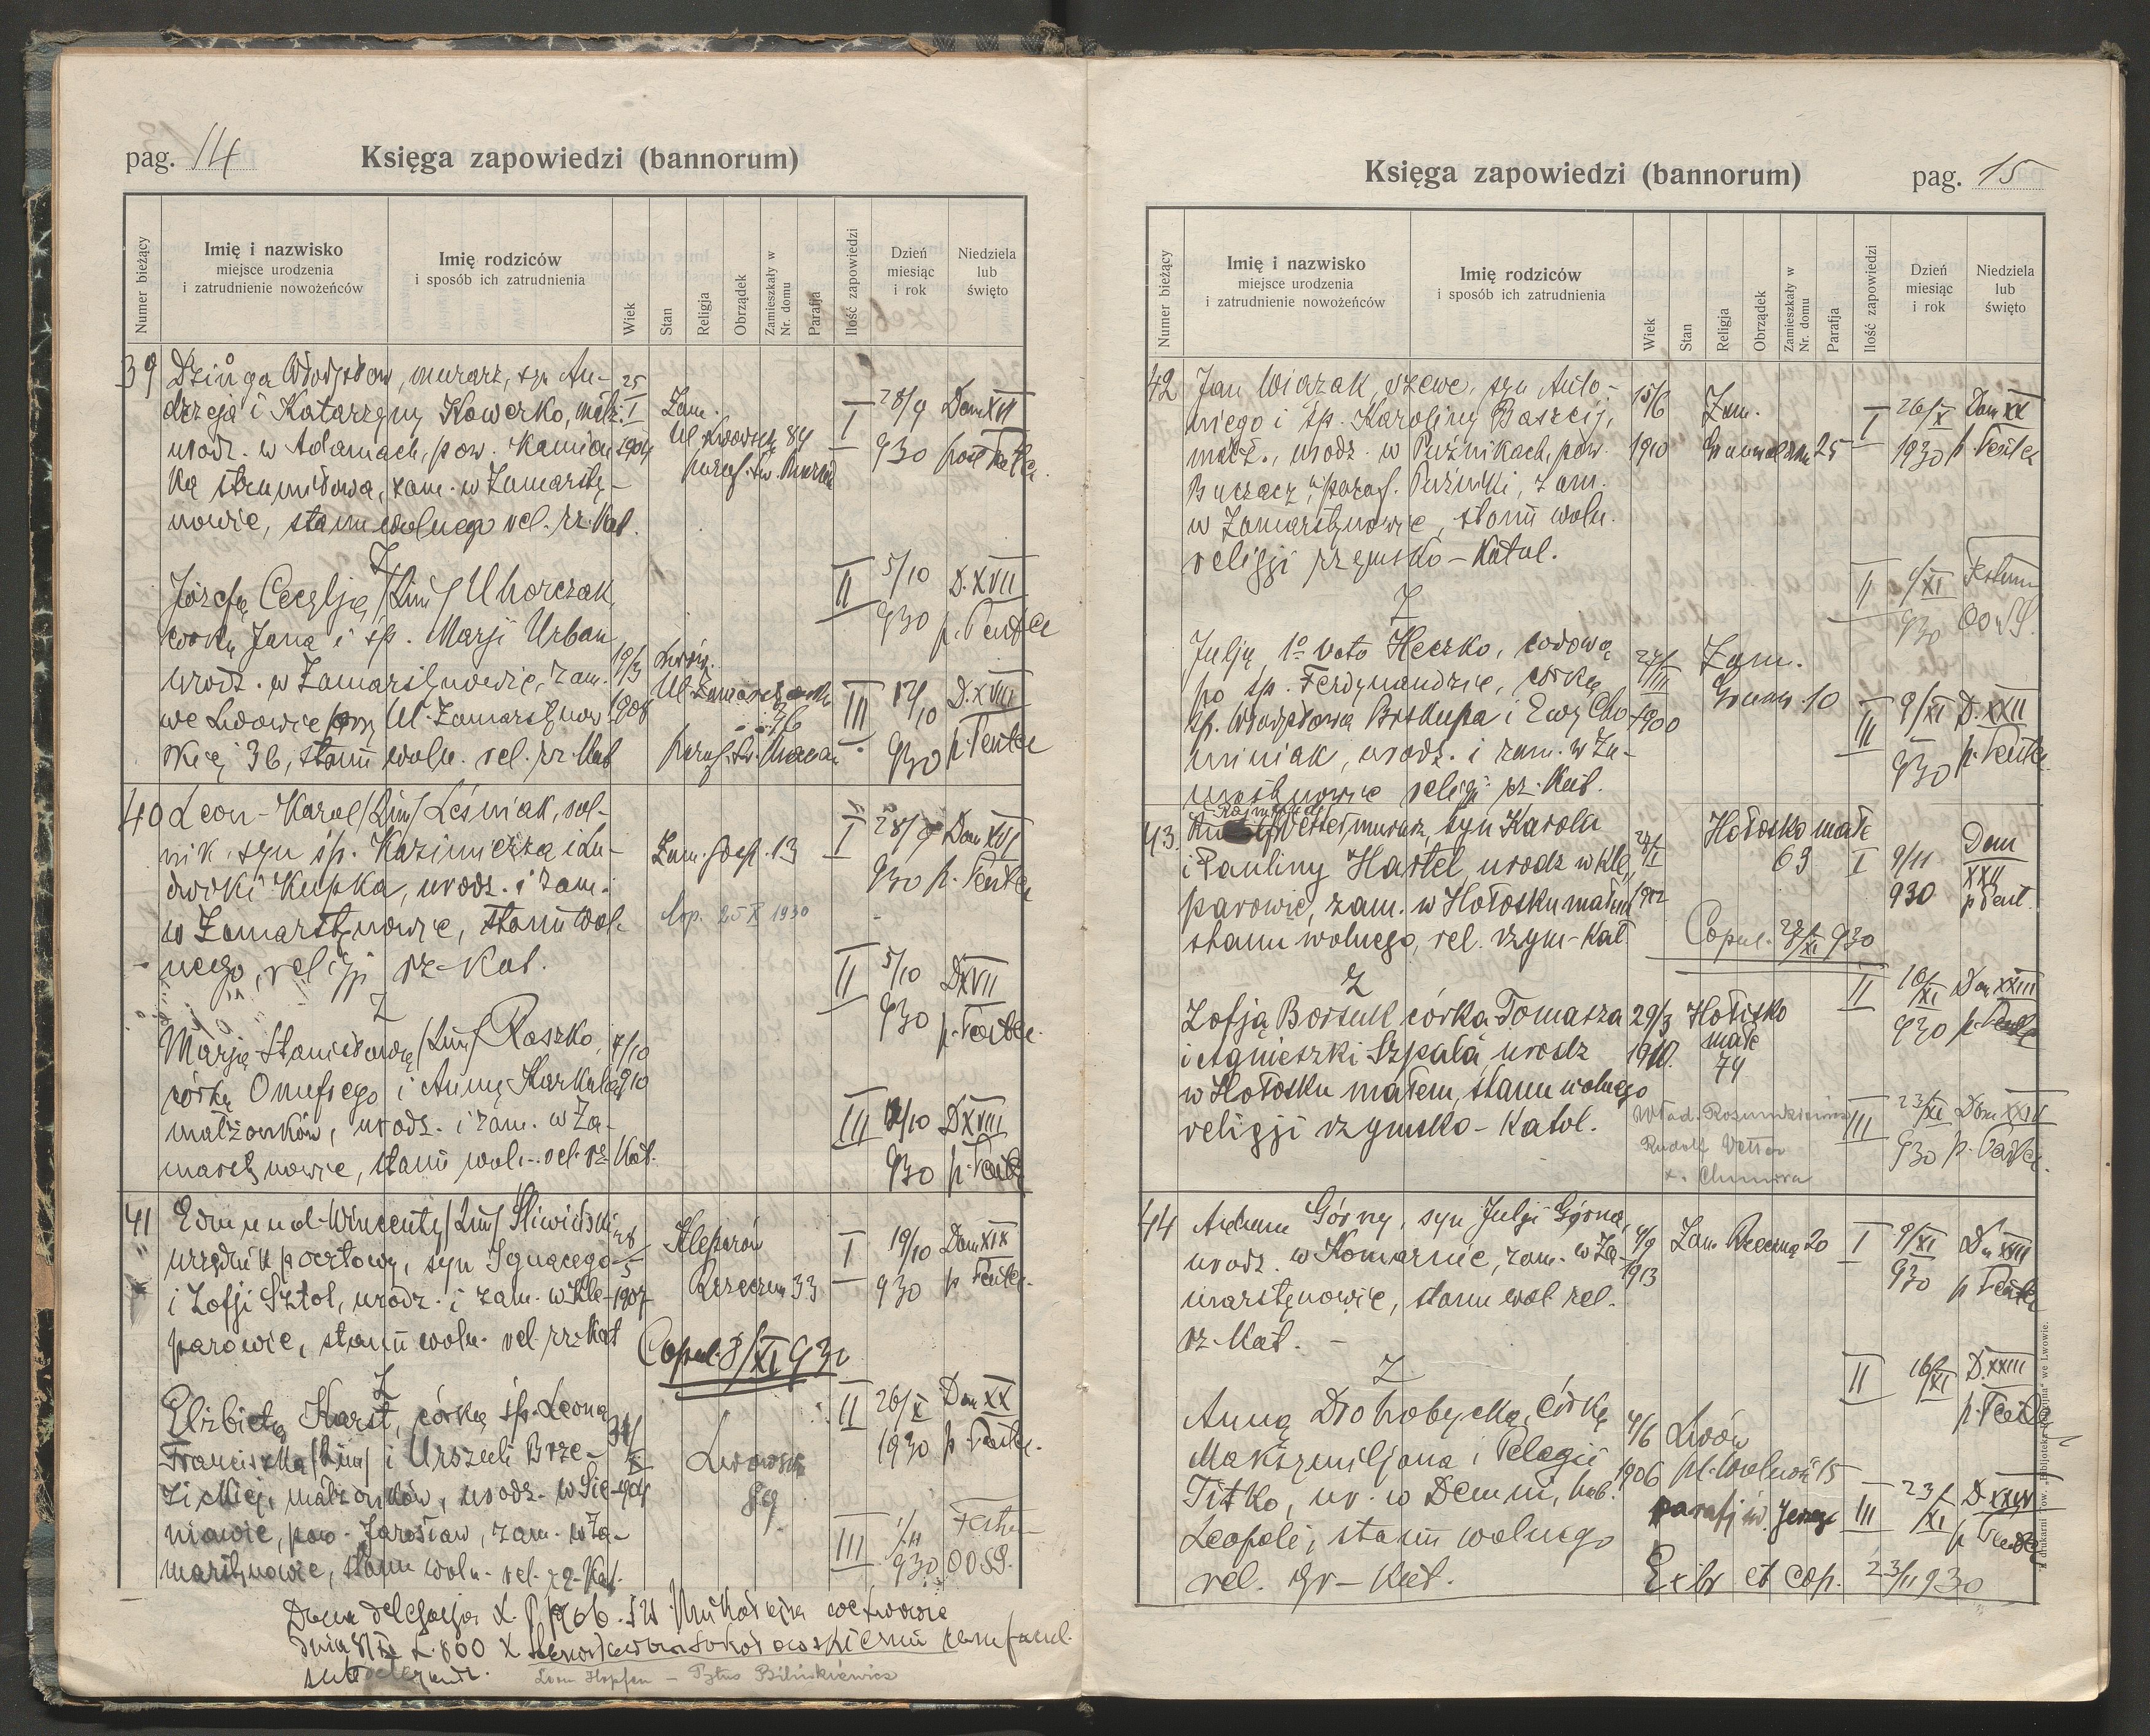 pag. 14
Księga zapowiedzi (bannorum)
Numer bieżący
Imię i nazwisko
miejsce urodzenia
i zatrudnienie nowożeńców
Imię rodziców
i sposób ich zatrudnienia
Wiek
Stan
Religja
Obrządek
Zamieszkały w
Nr. domu
Parafja
Ilość zapowiedzi
Dzień
miesiąc
i rok
Niedziela
lub
święto
39 Dziuga Włodysław, murarz, syn An- 25
drzeja i Katarzyny Kowerko, małż. I Zam. I 28/9 Dom XVI
urodz. w Adamach, pow. Kamion 1904 Ul. Lwowska 84 930 post Pentec.
ka strumiłowa, zam. w Zamarsty- paraf. św. Marcin
nowie, stanu wolnego rel. rz. kat.
Z
Józefę Cecylję /2im/ Uhorczak, II 5/10 D. XVII
córkę Jana i śp. Marji Urban 930 p. Pentec
urodz. w Zamarstynowie, zam. 19/3 Lwów.
we Lwowie przy Ul. Zamarstynow 1908 Ul. Zamarstynowska 36 III 12/10 D. XVIII
skiej 36, stanu woln. rel. rz. kat paraf. św. Marcin 930 p. Pentec
40 Leon-Karol /2im/ Leśniak, rol-
nik, syn śp. Kazimierza i Lu- Zam. Józef. 13 I 28/9 Dom XVI
dwiki Kupka, urodz. i zam. 930 p. Pentec
w Zamarstynowie, stanu wol- Cop. 25 X 1930
nego, religji rz-kat. II 5/10 D XVII
Z 930 p. Pentec.
Marję Stanisławę /2im/ Roszko, 7/10
córkę Onufrego i Anny Karkula 1910
małżonków, urodz. i zam. w Za- III 12/10 D XVIII
marstynowie, stanu woln. rel. rz. kat. 930 p. Pentec
41 Edmund-Wincenty /2im/ Śliwiński 28
urzędnik pocztowy, syn Ignacego 5 Kleparów I 19/10 Dom XIX
i Zofji Sztol, urodz. i zam. w Kle- 1907 Rzeczna 33 930 p. Pentec.
parowie, stanu woln. rel. rz. kat
Copul. 8/XI 930
Z
Elżbietę Karst, córkę śp. Leona II 26/X Dom XX
Franciszka /2im/ i Urszuli Brze- Lwowska 1930 p. Pentec.
zickiej, małżonków, urodz. w Sie- 1904 89
niawie, pow. Jarosław, zam. w Za- III 1/11 Festum
marstynowie, stanu woln. rel. rz-kat. 930 OO SS.
Dana delegacja
Leon Hopfen – Tytus Bilinkiewicz
Księga zapowiedzi (bannorum)
pag. 15
Numer bieżący
Imię i nazwisko
miejsce urodzenia
i zatrudnienie nowożeńców
Imię rodziców
i sposób ich zatrudnienia
Wiek
Stan
Religja
Obrządek
Zamieszkały w
Nr. domu
Parafja
Ilość zapowiedzi
Dzień
miesiąc
i rok
Niedziela
lub
święto
42 Jan Wiązak, szewc, syn Anto- 15/6 Zam. I 26/X Dom XX
niego i śp. Karoliny Baszcij,
małż., urodz. w Puźnikach, pow. 1910 Grunwaldzka 25 1930 p. Pentec
Buczacz, paraf. Puźniki, zam.
w Zamarstynowie, stanu woln.
religji rzymsko-katol.
Z II 1/XI Festum
930 OO SS.
Julję, 1o voto Heczko, wdową Zam.
po śp. Ferdynandzie, córkę Grunw. 10
śp. Władysława Biskupa i Ewy Cho- 1900 III 9/XI D. XXII
miniak, urodz. i zam. w Za- 930 p. Pentec.
marstynowie religji rz. kat.
43. Vetter murarz, syn Karola Hołosko małe
i Pauliny Hartel, urodz w Kle- 69 I 9/11 Dom XXII
parowie, zam. w Hołosku małem 1902 930 p Pent.
stanu wolnego, rel. rzym-kat. Copul. 23/XI 930
Z II 16/XI Dom XXIII
Zofją Borsuk córka Tomasza 29/3 Hołosko 930 p. Pentec
i Agnieszki Szpala, urodz 1910. małe
w Hołosku małem, stanu wolnego 74
religji rzymsko-katol. Wład. Rozumkiewicz III 23/XI Dom XXIV
Rudolf Vetter 930 p. Pentec.
x. Chmura
44 Adam Górny, syn Julji Górna, 4/9 Zam Rzeczna 20 I 9/XI D XXII
urodz. w Komarnie, zam. w Za- 1913 930 p Pentec
marstynowie, stanu wol. rel.
rz-kat.
Z II 16/XI D. XXIII
p. Pentec
Anną Drohobycką, córkę 4/6 Lwów
Maksymiljana i Pelagii 1906 pl. Wolność 15
Titko, ur. w Demni, hab. parafj św. Jerzego III 23/XI D. XXIV
Leopoli, stanu wolnego p Pentec
rel. gr-kat. Exhr et cop. 23/11 930
Z drukarni Tow. „Bibljoteka Religijna“ we Lwowie.